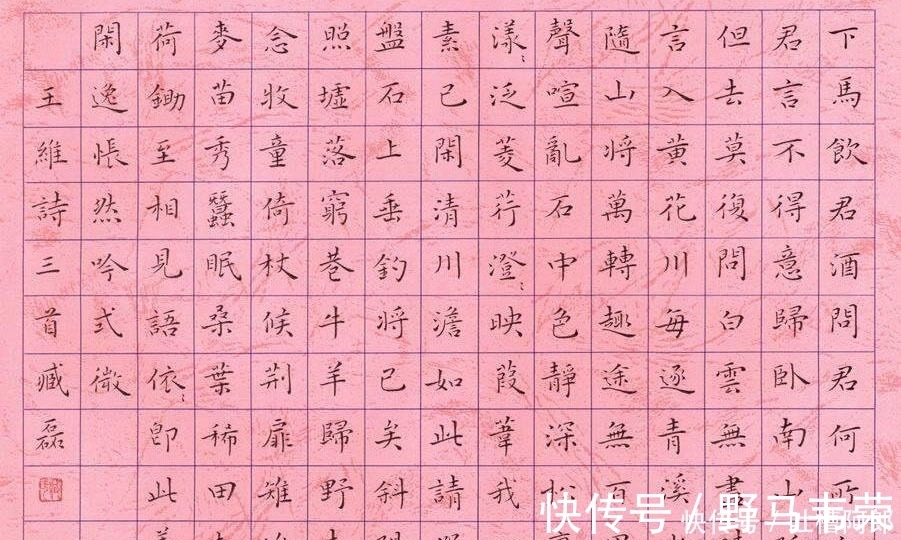 下馬飲君酒問君何所
君言不得意歸臥南山
但去莫復問白雲無盡
言入黃花川每逐青溪
隨山將萬轉趣途無百
聲喧亂石中色靜深松
漾〻泛菱荇澄〻映葭葦我
素已閑清川澹如此請
盤石上垂釣將已矣斜
照墟落窮巷牛羊歸野
念牧童倚杖候荊扉雉
麥苗秀蠶眠桑葉稀田
荷鋤至相見語依〻即此
閑逸悵然吟式微
王維詩三首臧磊
快传号 / 野马
快传号 /